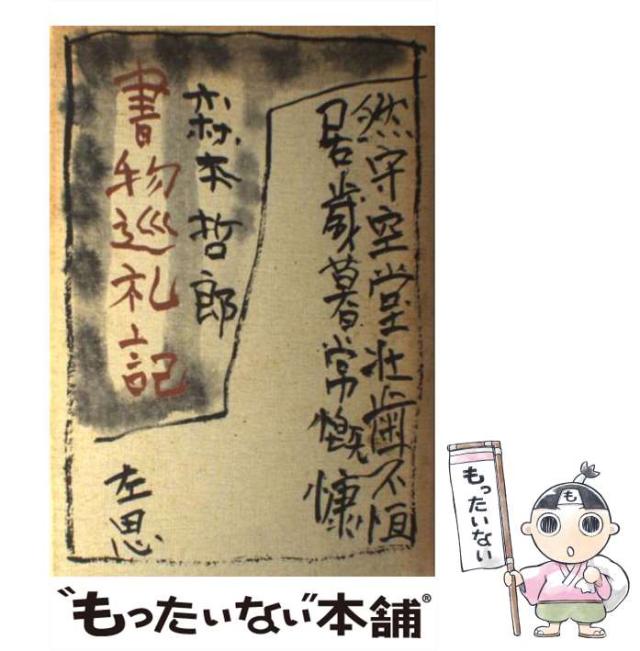 然守空堂壮歯不恒
居歳暮常慨慷
森本哲郎
書物巡礼記
左思
"もったいない"本舗®
もったいない
も